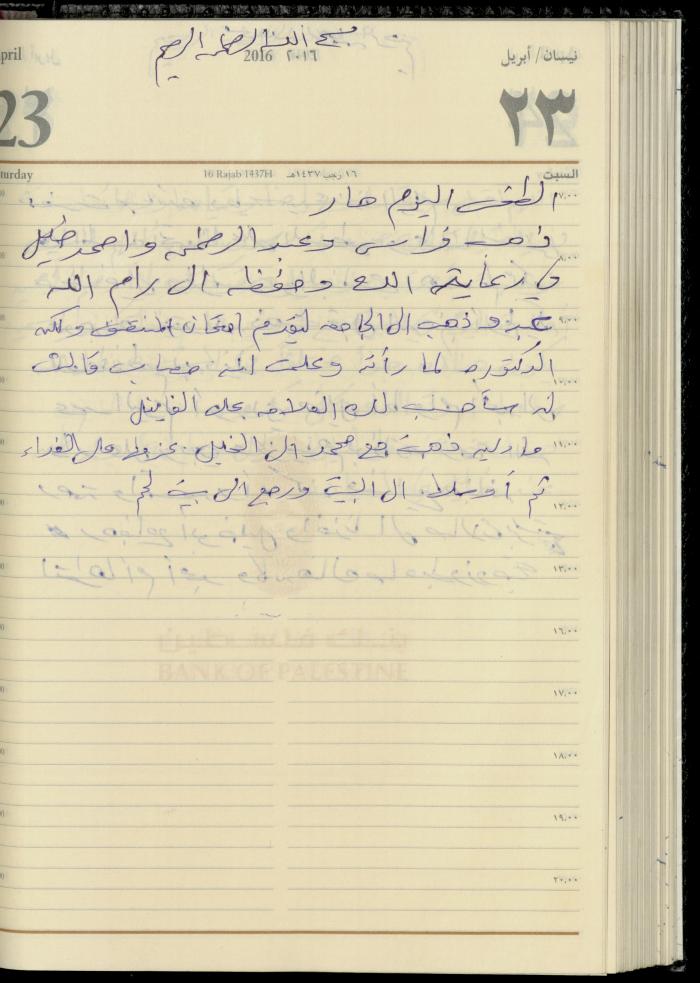 بسم الله الرحمن الرحيم
pril
2016 ٢٠١٦
نيسان/أبريل
23
٢٣
turday
16 Rajab 1437H ١٦ رجب ١٤٣٧هـ
السبت
٧:٠٠
الطقس اليوم حار
ذهب فراس وعبد الرحمن واحمد خليل
٨:٠٠
في رعاية الله وحفظه الى رام الله
٩:٠٠
وذهب الى الجامعه ليقدم امتحان ولكن
الدكتوره لما رأته وعلمت انه مصاب قالت
١٠:٠٠
له سأحسب لك العلامه على الفاينل
١١:٠٠
ذهبت مع محمد الى الخليل عزموا على الغداء
ثم أوصلا الى البيت ورجع الى بيت لحم
١٢:٠٠
١٣:٠٠
١٦:٠٠
بنك فلسطين
BANK OF PALESTINE
١٧:٠٠
١٨:٠٠
١٩:٠٠
٢٠:٠٠